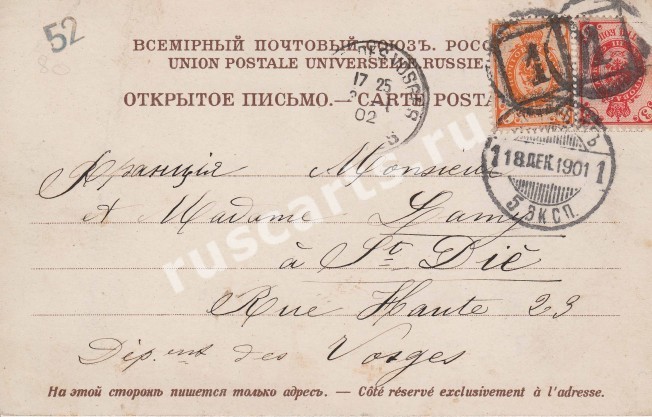 52
ВСЕМІРНЫЙ ПОЧТОВЫЙ СОЮЗЪ. РОСС
UNION POSTALE UNIVERSELLE. RUSSIE
ОТКРЫТОЕ ПИСЬМО.— CARTE POSTA
17 25
02
1 18 ДЕК 1901 1
5 ЭКСП.
Франція Monsieur
& Madame Lamy
à St. Dié
Rue Haute 23
Dép.ent des Vosges
На этой сторонѣ пишется только адресъ. — Côté réservé exclusivement à l'adresse.
ruscarts.ru